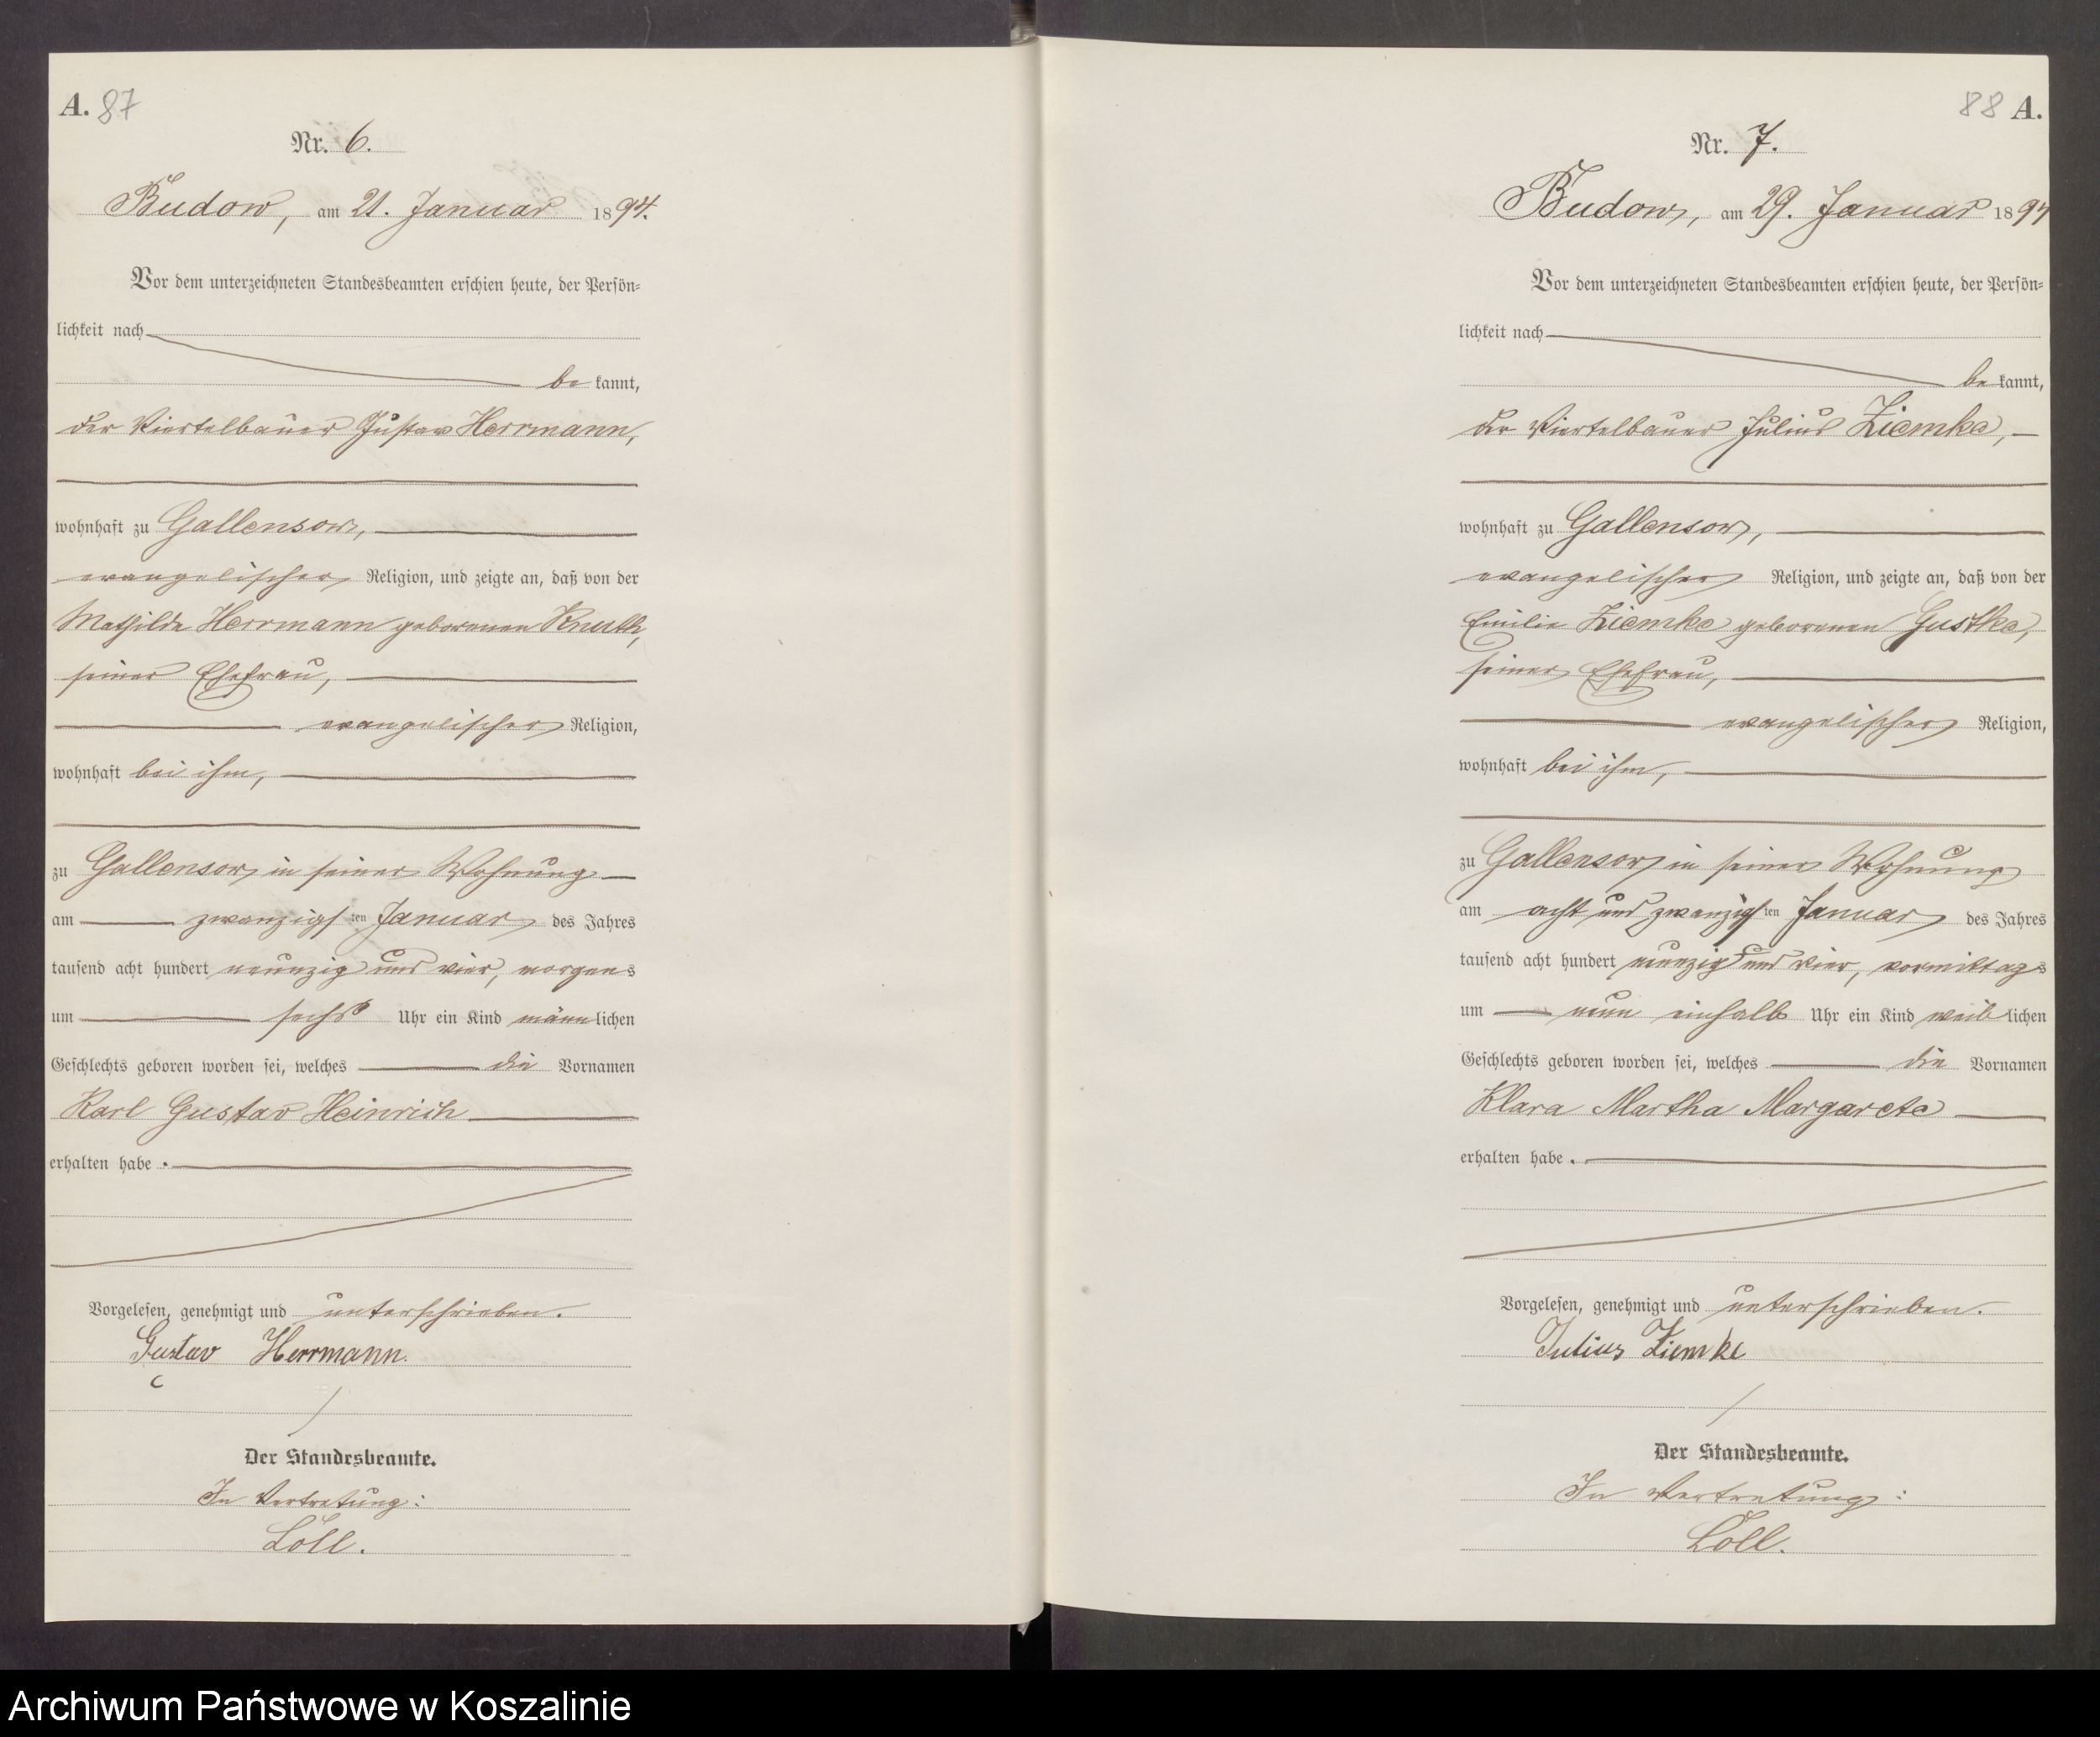 A. 87
Nr. 6.
Budow, am 21. Januar 1894.
Vor dem unterzeichneten Standesbeamten erschien heute, der Persön-
lichkeit nach
be kannt,
der Viertelbauer Gustav Herrmann,
wohnhaft zu Gallensow,
evangelischer Religion, und zeigte an, daß von der
Mathilde Herrmann geborenen Knuth,
seiner Ehefrau,
evangelischer Religion,
wohnhaft bei ihm,
zu Gallensow in seiner Wohnung
am zwanzigsten Januar des Jahres
tausend acht hundert neunzig und vier, morgens
um sechs Uhr ein Kind männlichen
Geschlechts geboren worden sei, welches die Vornamen
Karl Gustav Heinrich
erhalten habe.
Vorgelesen, genehmigt und unterschrieben.
Gustav Herrmann.
Der Standesbeamte.
In Vertretung:
Löll.
88 A.
Nr. 7.
Budow, am 29. Januar 1894
Vor dem unterzeichneten Standesbeamten erschien heute, der Persön-
lichkeit nach
be kannt,
der Viertelbauer Julius Ziemke,
wohnhaft zu Gallensow,
evangelischer Religion, und zeigte an, daß von der
Emilie Ziemke geborenen Gustke,
seiner Ehefrau,
evangelischer Religion,
wohnhaft bei ihm,
zu Gallensow in seiner Wohnung
am acht und zwanzigsten Januar des Jahres
tausend acht hundert neunzig und vier, vormittags
um neun einhalb Uhr ein Kind weiblichen
Geschlechts geboren worden sei, welches die Vornamen
Klara Martha Margarete
erhalten habe.
Vorgelesen, genehmigt und unterschrieben.
Julius Ziemke
Der Standesbeamte.
In Vertretung:
Löll.
Archiwum Państwowe w Koszalinie